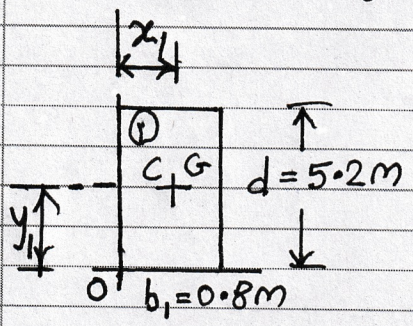 x₁
①
C G
d = 5.2M
y₁
O
b₁ = 0.8M